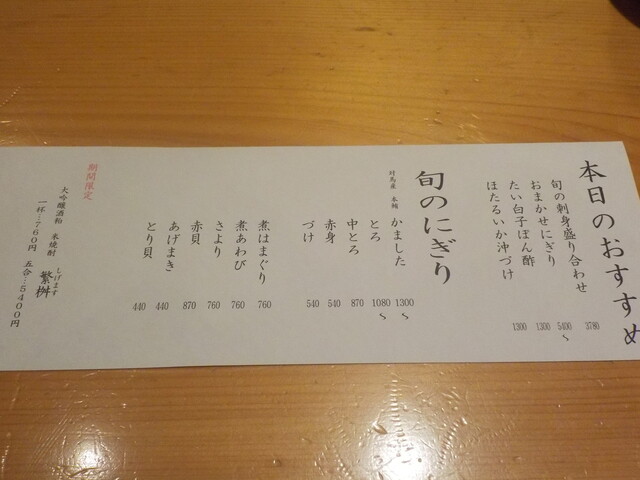 本日のおすすめ
旬の刺身盛り合わせ 3780
おまかせにぎり 5400～
たい白子ぽん酢 1300
ほたるいか沖づけ 1300
旬のにぎり
対馬産 本鮪 かました 1300～
とろ 1080～
中とろ 870
赤身 540
づけ 540
煮はまぐり 760
煮あわび 760
さより 760
赤貝 870
あげまき 440
とり貝 440
期間限定
大吟醸酒粕 米焼酎 繁桝 しげます
一杯：760円 五合：5400円